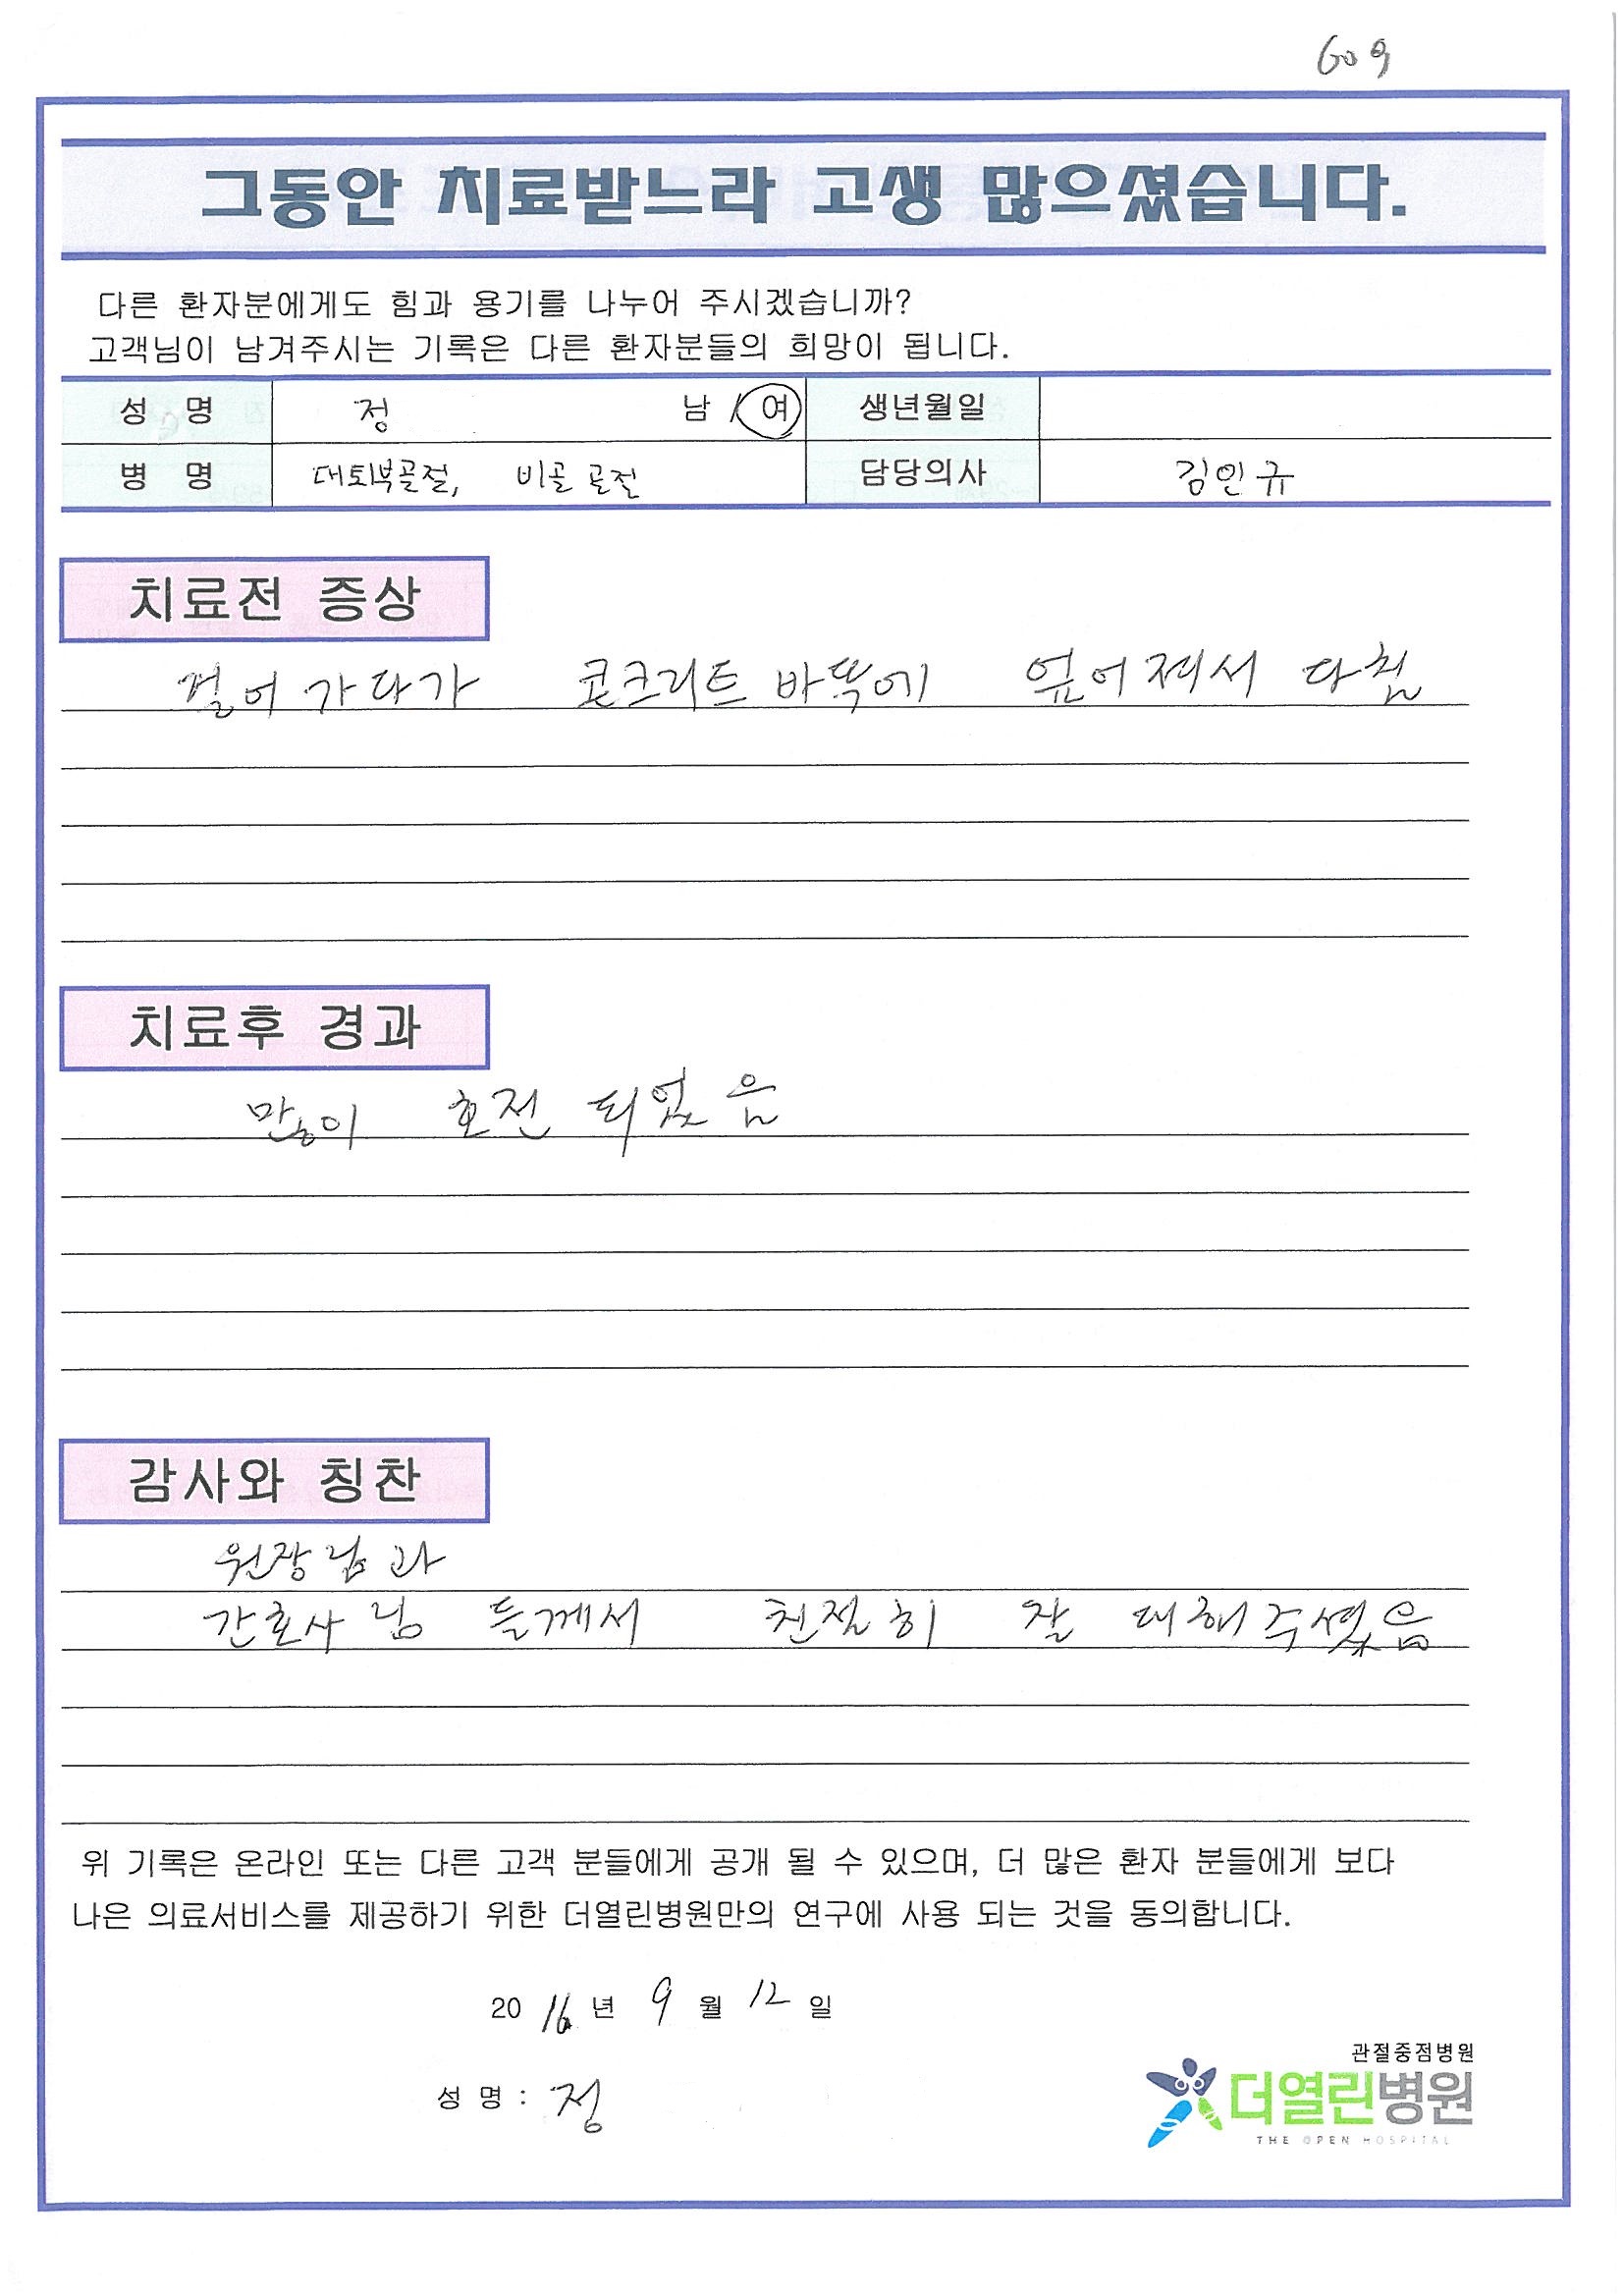 609
그동안 치료받느라 고생 많으셨습니다.
다른 환자분에게도 힘과 용기를 나누어 주시겠습니까?
고객님이 남겨주시는 기록은 다른 환자분들의 희망이 됩니다.
성 명 정 남 / 여 생년월일
병 명 대퇴부골절, 비골 골절 담당의사 김인규
치료전 증상
걸어가다가 콘크리트 바뚝에 엎어져서 다침
치료후 경과
많이 호전 되었음
감사와 칭찬
원장님과
간호사님 들께서 친절히 잘 대해주셨음
위 기록은 온라인 또는 다른 고객 분들에게 공개 될 수 있으며, 더 많은 환자 분들에게 보다
나은 의료서비스를 제공하기 위한 더열린병원만의 연구에 사용 되는 것을 동의합니다.
2016년 9월 12일
성 명 : 정
관절중점병원
더열린병원
THE OPEN HOSPITAL